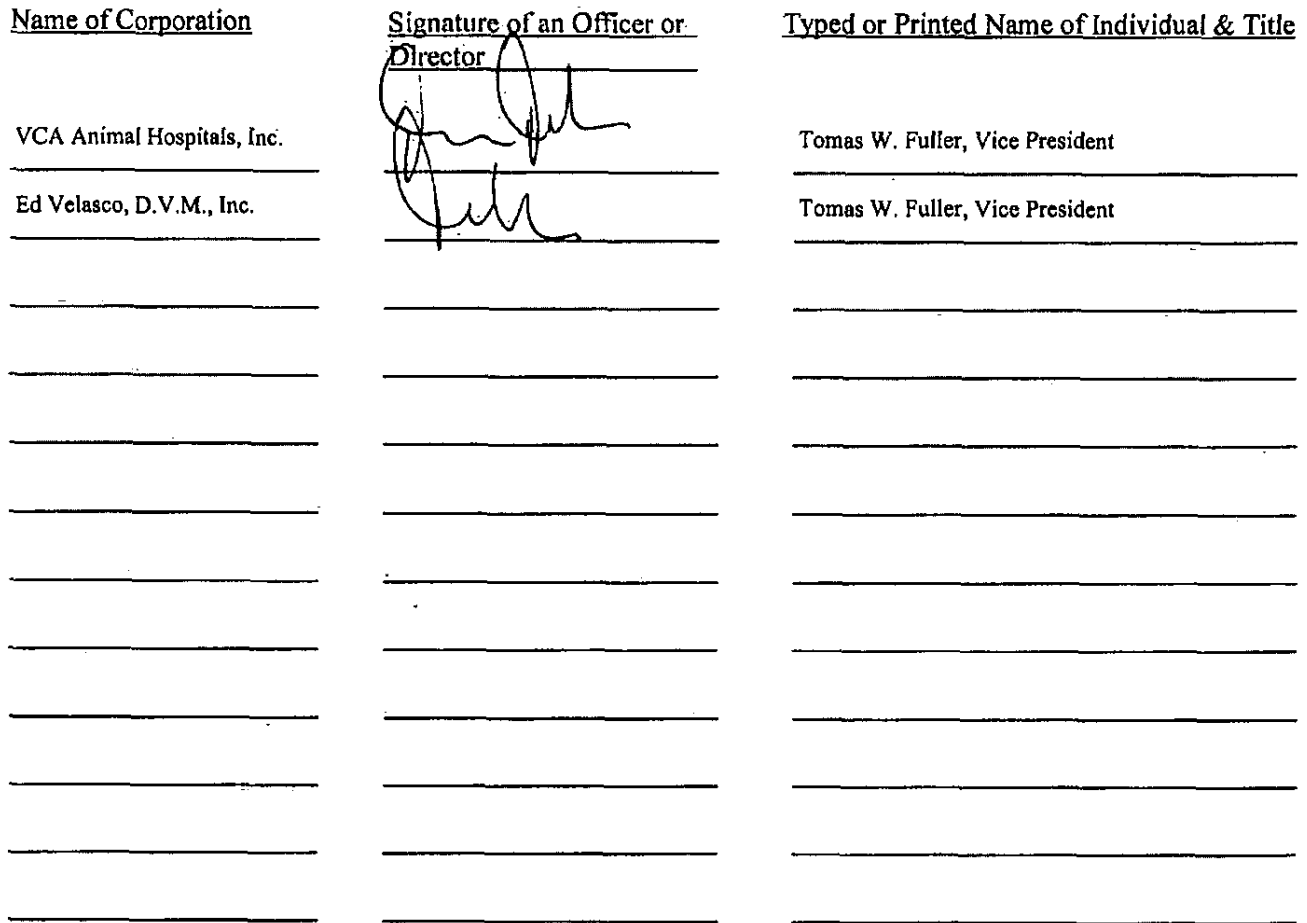 Name of Corporation
Signature of an Officer or
Director
Typed or Printed Name of Individual & Title
VCA Animal Hospitals, Inc.
Tomas W. Fuller, Vice President
Ed Velasco, D.V.M., Inc.
Tomas W. Fuller, Vice President